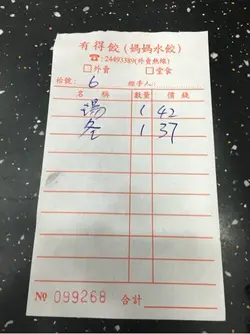 有得餃(媽媽水餃)
☎:24493389(外賣熱線)
□外賣 □堂食
枱號: 6 經手人:
名稱 數量 價錢
湯 1 42
冬 1 37
№ 099268 合計